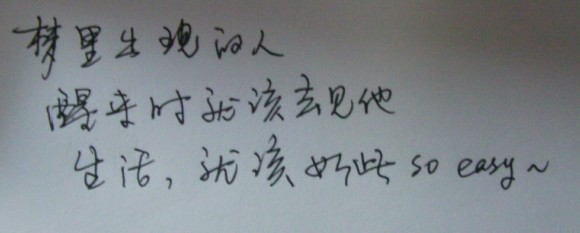 梦里出现的人
醒来时就该去见他
生活，就该如此 so easy~